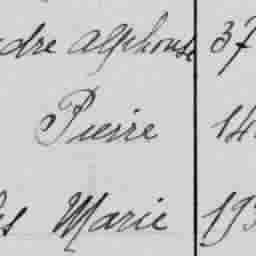 dre Alphonse 37
Pierre 14
s Marie 193